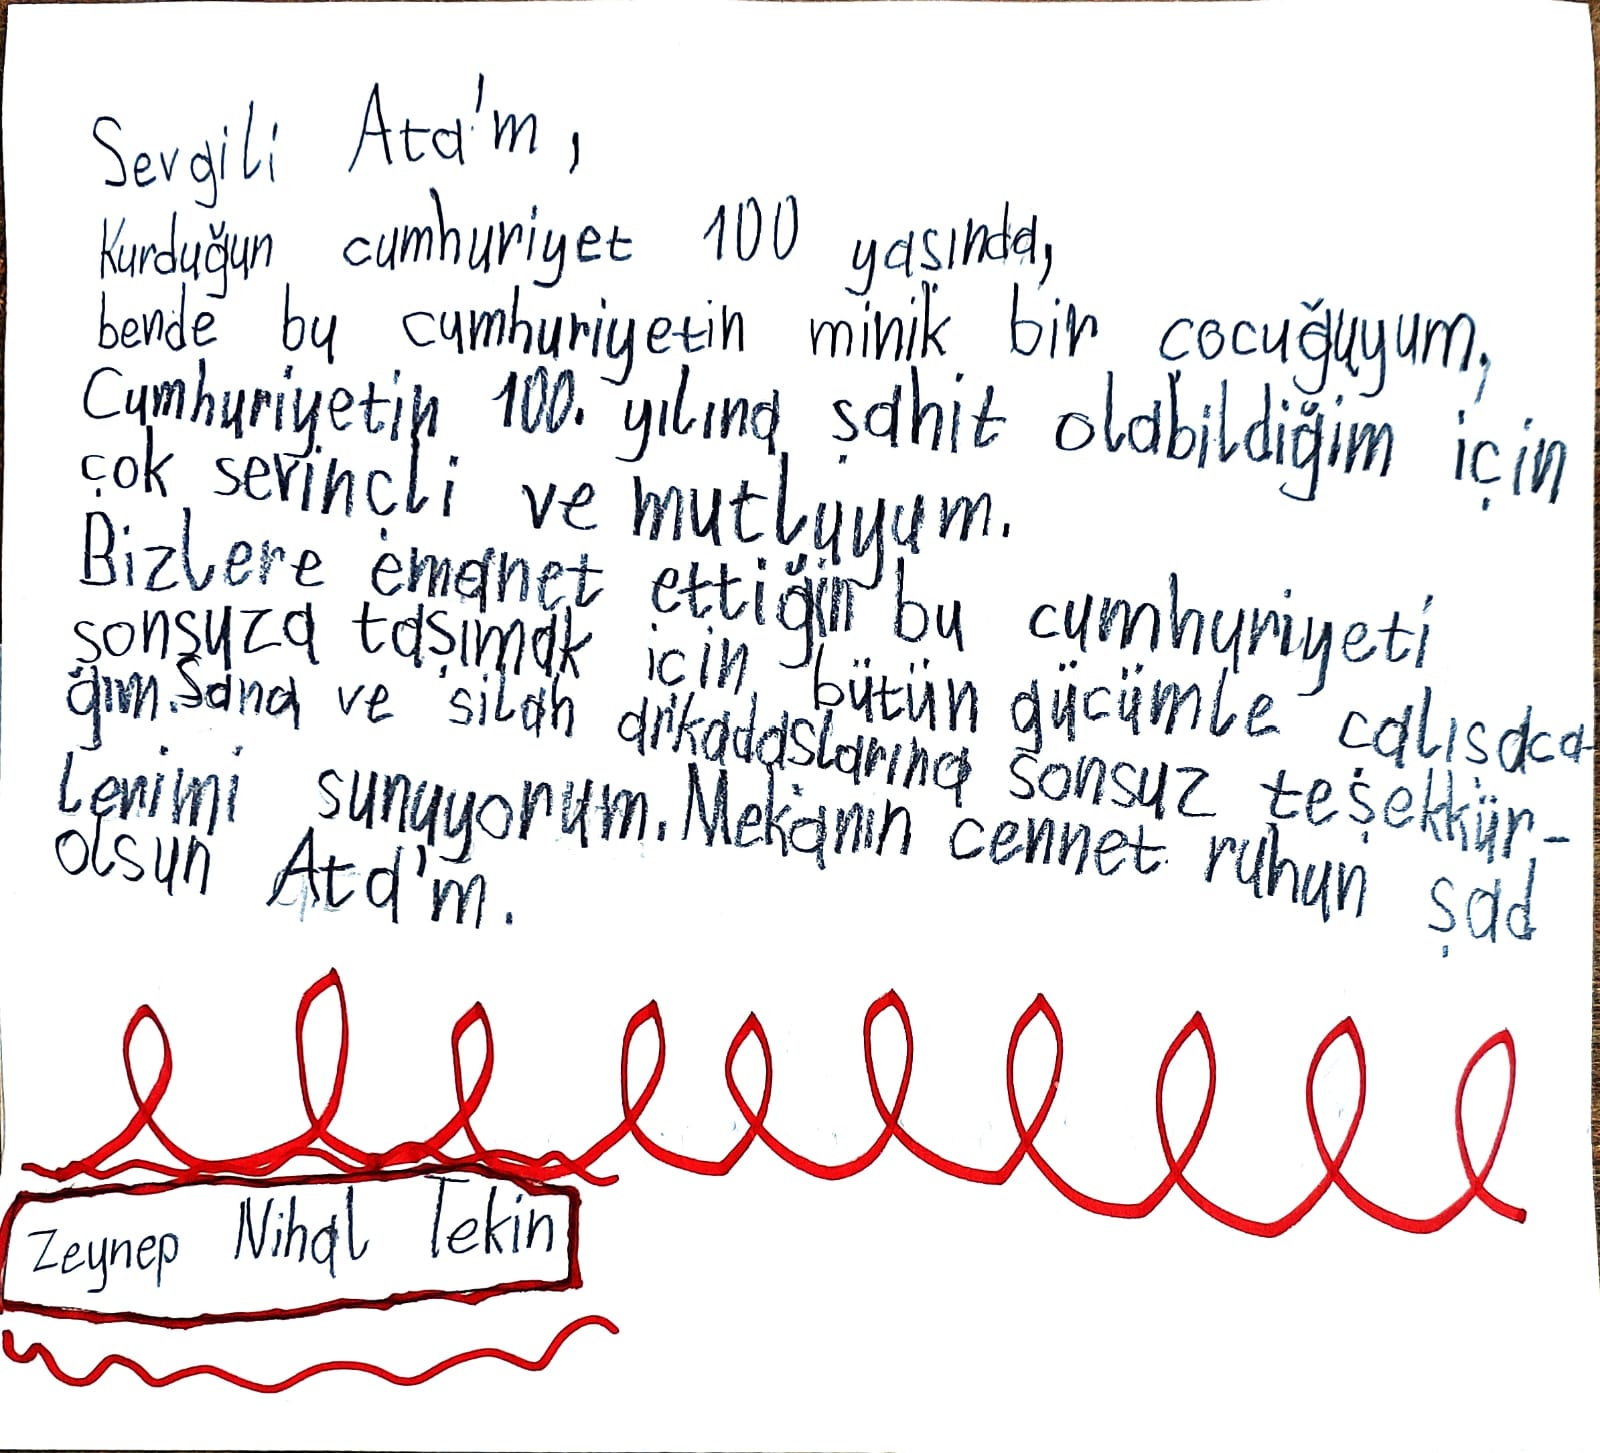 Sevgili Ata'm,
Kurduğun cumhuriyet 100 yaşında,
bende bu cumhuriyetin minik bir cocuğuyum,
Cumhuriyetin 100. yılına şahit olabildiğim için
çok sevinçli ve mutluyum.
Bizlere emanet ettiğin bu cumhuriyeti
sonsuza taşımak için bütün gücümle calısaca-
ğım. Sana ve silah arkadaşlarına sonsuz teşekkür-
lerimi sunuyorum. Mekanın cennet ruhun şad
olsun Ata'm.
Zeynep Nihal Tekin